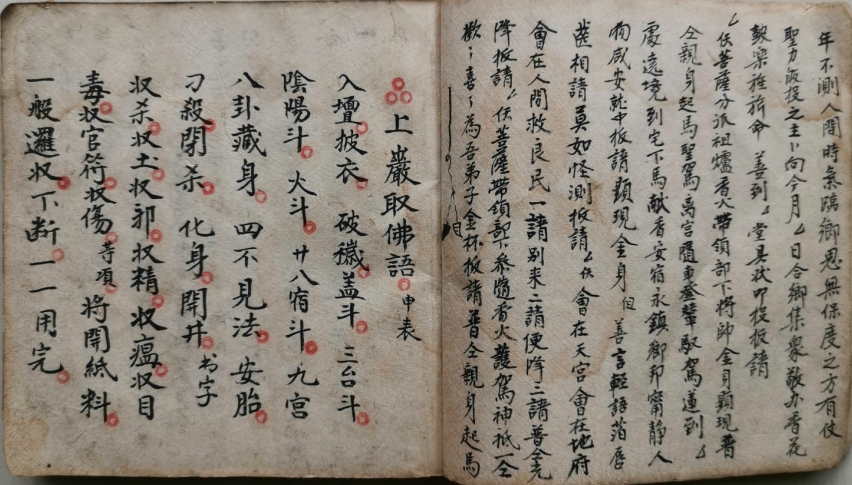 年不測人間時氣臨鄉思無保度之方有伏
聖力敬投之主卜向今月日合鄉集眾敬办香花
鼓樂旌旂命善到堂具狀叩投扳請
伏菩薩分派祖爐香火帶領部下將帥金身顯現普
仝親身起馬聖駕离宮隨車登輦馭駕蓮到
處遠境到宅下馬献香安宿永鎮鄉邦甯静人
物咸安乾中扳請顯現金身但善言輕語落唇
齒相請莫如怪測扳請伏會在天宮會在地府
會在人間救良民一請别来二請便降三請普仝先
降扳請伏菩薩帶領部下叅隨香火護駕神祗一仝
歡喜為吾弟子金杯扳請普仝親身起馬
上巖取佛語申表
入壇披衣破穢盖斗三台斗
陰陽斗火斗廿八宿斗九宮
八卦藏身四不見法安胎
刀殺閉杀化身開井书字
収杀収土収邪収精収瘟収目
毒収官符収傷等項將開紙料
一般邏収下断一一用完